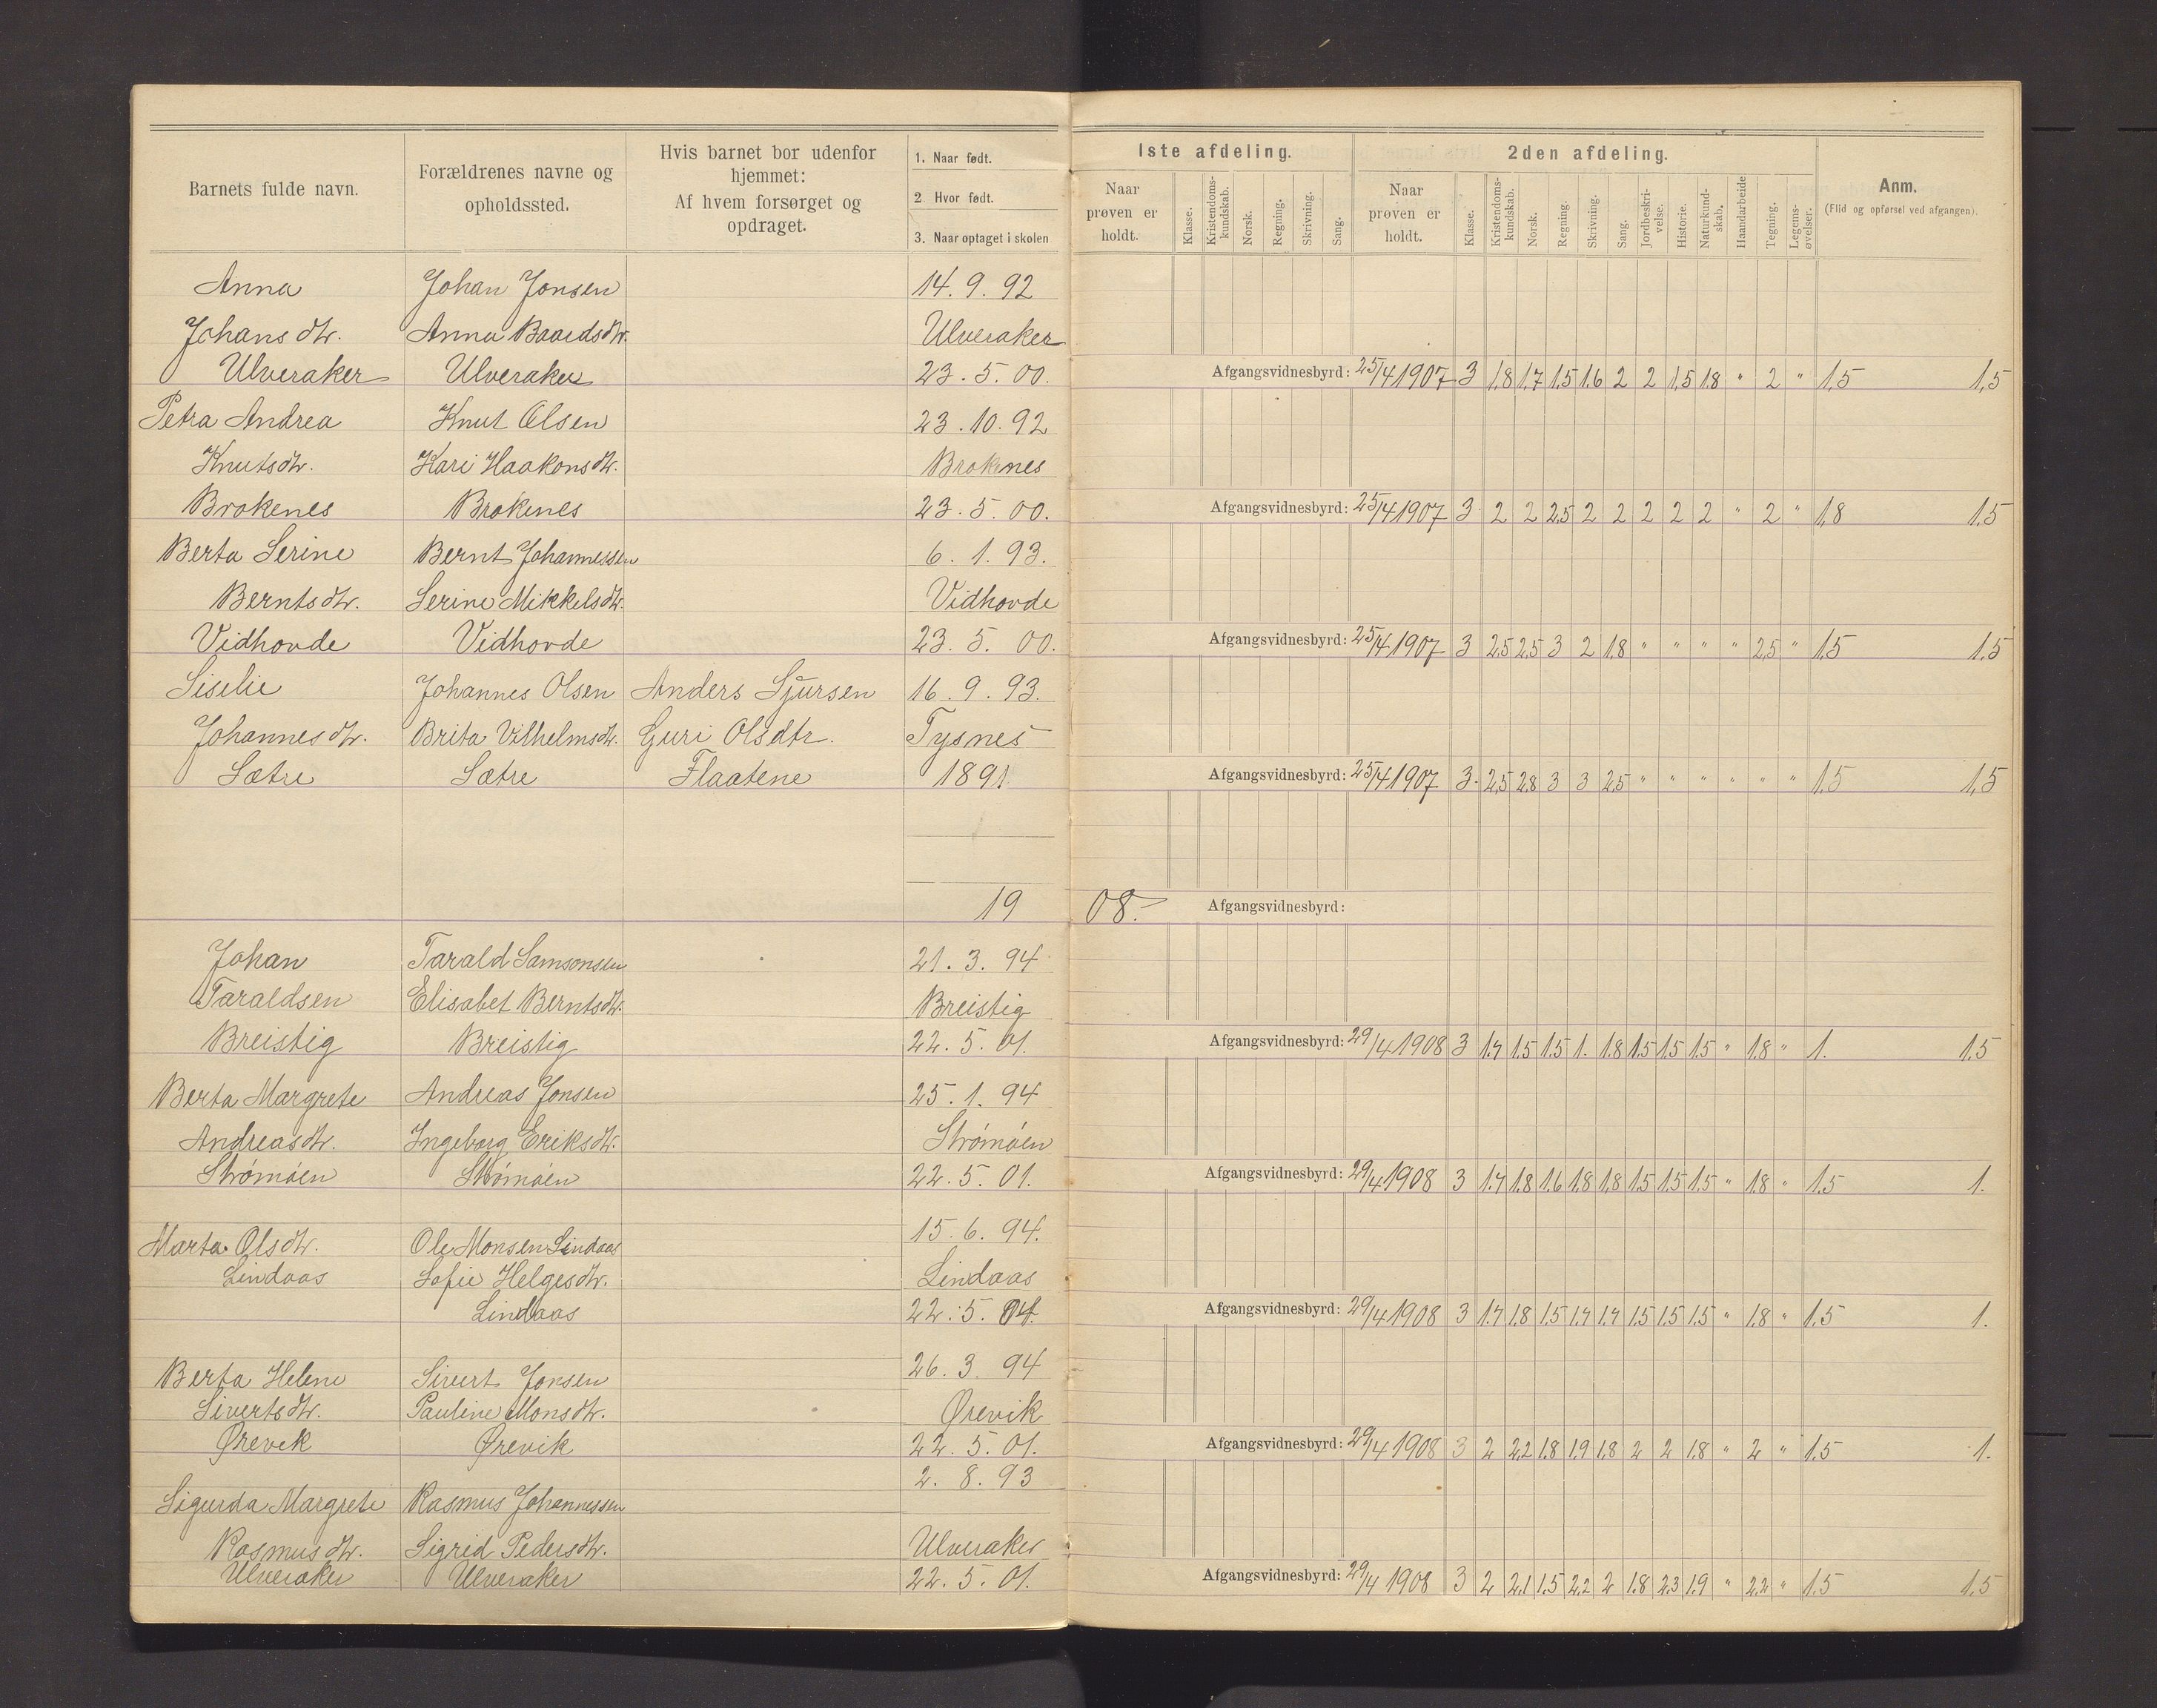 Barnets fulde navn.
Forældrenes navne og opholdssted.
Hvis barnet bor udenfor hjemmet:
Af hvem forsørget og opdraget.
1. Naar født.
2 Hvor født.
3. Naar optaget i skolen
1ste afdeling.
2den afdeling.
Naar prøven er holdt.
Klasse.
Kristendoms-kundskab.
Norsk.
Regning.
Skrivning.
Sang.
Naar prøven er holdt.
Klasse.
Kristendoms-kundskab.
Norsk.
Regning.
Skrivning.
Sang.
Jordbeskri-velse.
Historie.
Naturkund-skab.
Haandarbeide
Tegning.
Legems-øvelser.
Anm.
(Flid og opførsel ved afgangen)
Anna Johan Jonsen 14. 9. 92
Johans dtr. Anna Baards dtr. Ulveraker
Ulveraker Ulveraker 23. 5. 00. Afgangsvidnesbyrd: 25/4 1907 3 1,8 1,7 1,5 1,6 2 2 1,5 1,8 " 2 " 1,5 1,5
Petra Andrea Knut Olsen 23. 10. 92
Knutsdtr. Kari Haakonsdtr. Brokenes
Brokenes Brokenes 23. 5. 00. Afgangsvidnesbyrd: 25/4 1907 3 2 2 2,5 2 2 2 2 2 " 2 " 1,8 1,5
Berta Serine Bernt Johannessen 6. 1. 93.
Bernts dtr. Serine Mikkels dtr. Vidhovde
Vidhovde Vidhovde 23. 5. 00. Afgangsvidnesbyrd: 25/4 1907 3 2,5 2,5 3 2 1,8 " " " " 2,5 " 1,5 1,5
Siselie Johannes Olsen Anders Sjursen 16. 9. 93.
Johannes dtr. Brita Vilhelmsdtr. Guri Olsdtr. Tysnes
Sætre Sætre Flaatene 1891 Afgangsvidnesbyrd: 25/4 1907 3. 2,5 2,8 3 3 2,5 " " " " " " 1,5 1,5
19 08. Afgangsvidnesbyrd:
Johan Tarald Samsonsen 21. 3. 94
Taraldsen Elisabet Berntsdtr. Breistig
Breistig Breistig 22. 5. 01. Afgangsvidnesbyrd: 29/4 1908 3 1.7 1.5 1.5 1. 1.8 1.5 1.5 1.5 " 1.8 " 1. 1.5
Berta Margrete Andreas Jonsen 25. 1. 94
Andreasdtr. Ingeborg Eriksdtr. Strømøen
Strømøen Strømøen 22. 5. 01. Afgangsvidnesbyrd: 29/4 1908 3 1.7 1.8 1.6 1.8 1.8 1.5 1.5 1.5 " 1.8 " 1.5 1.
Marta Olsdtr. Ole Monsen Lindaas 15. 6. 94.
Lindaas Sofie Helgesdtr. Lindaas
Lindaas 22. 5. 01. Afgangsvidnesbyrd: 29/4 1908 3 1.7 1.8 1.5 1.7 1.7 1.5 1.5 1.5 " 1.8 " 1.5 1.
Berta Helene Sivert Jonsen 26. 3. 94
Siverts dtr. Pauline Mons dtr. Ørevik
Ørevik Ørevik 22. 5. 01. Afgangsvidnesbyrd: 29/4 1908 3 2 2.2 1.8 1.9 1.8 2 2 1.8 " 2 " 1.5 1.
2. 8. 93
Sigurda Margrete Rasmus Johannessen
Rasmus dtr. Sigrid Pedersdtr. Ulveraker
Ulveraker Ulveraker 22. 5. 01. Afgangsvidnesbyrd: 29/4 1908 3 2 2.1 1.5 2.2 2 1.8 2.3 1.9 " 2.2 " 1.5 1.5